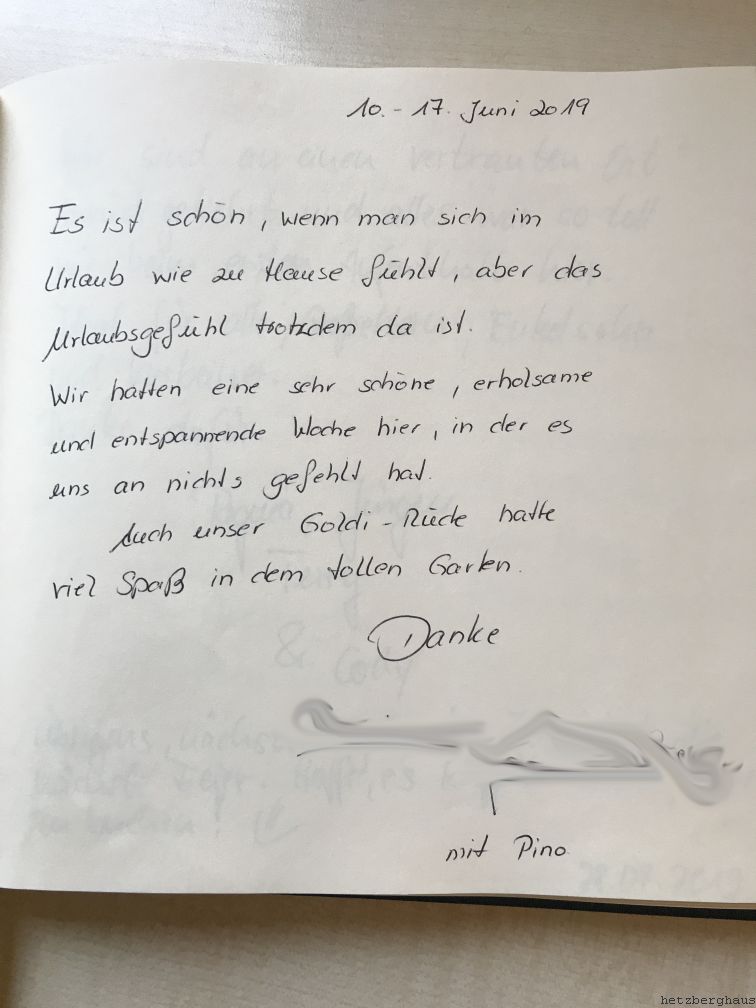 10. - 17. Juni 2019
Es ist schön, wenn man sich im
Urlaub wie zu Hause fühlt, aber das
Urlaubsgefühl trotzdem da ist.
Wir hatten eine sehr schöne, erholsame
und entspannende Woche hier, in der es
uns an nichts gefehlt hat.
Auch unser Goldi-Rüde hatte
viel Spaß in dem tollen Garten.
Danke
mit Pino
hetzberghaus